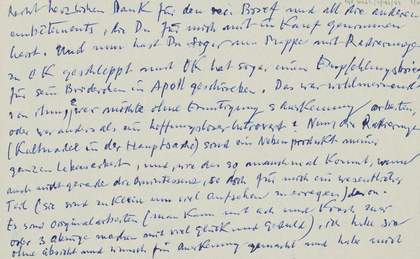 Recht herzlichen Dank für den Brief und all die anderen
die Du für mich mit in Kauf genommen
hast. Und nun hast Du sogar die Mappe mit Radierungen
zu OK geschleppt und OK hat sogar einen Empfehlungsbrief
für sein Brüderchen in Apoll geschrieben. Das war wohltuend
von ihm, wer möchte ohne Ermutigung & Anerkennung arbeiten,
oder wer anders als ein hoffnungsloser Introvert? Nun, die Radierungen
(Kaltnadel in der Hauptsache) sind ein Nebenprodukt meiner
ganzen Lebensarbeit, und, wie das so manchmal kommt, wenn
auch nicht gerade das, so doch für mich ein wesentlicher
Teil (sie sind zu klein um viel Aufsehen zu erregen) davon.
Es sind Originalarbeiten (man kann mit Ach und Krach zwei
oder 3 Abzüge machen mit viel Glück und Geduld), ich habe sie
ohne Absicht und Wunsch für Anerkennung gemacht und habe mich